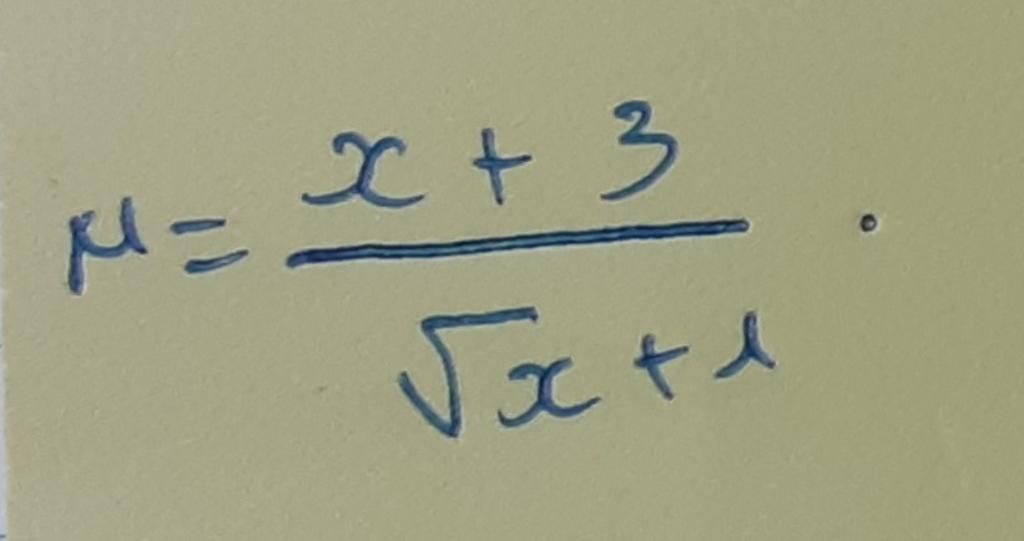 μ = \frac{x + 3}{\sqrt{x} + 1} .